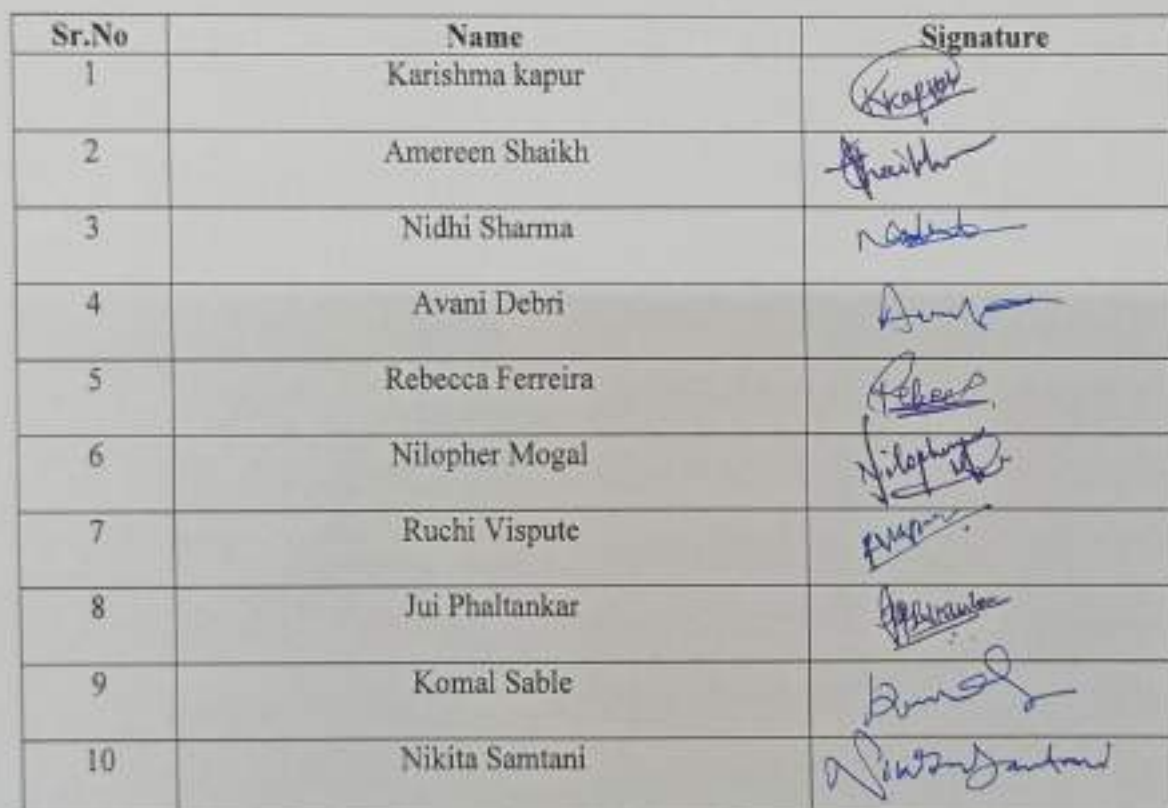 Sr.No Name Signature
1 Karishma kapur Kkapur
2 Amereen Shaikh
3 Nidhi Sharma
4 Avani Debri
5 Rebecca Ferreira
6 Nilopher Mogal Nilopher
7 Ruchi Vispute
8 Jui Phaltankar
9 Komal Sable
10 Nikita Samtani